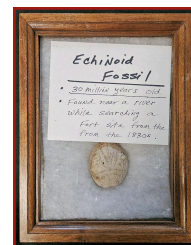 Echinoid
Fossil
• 30 million years old
• Found near a river
while searching a
Fort site from the
from the 1830s.